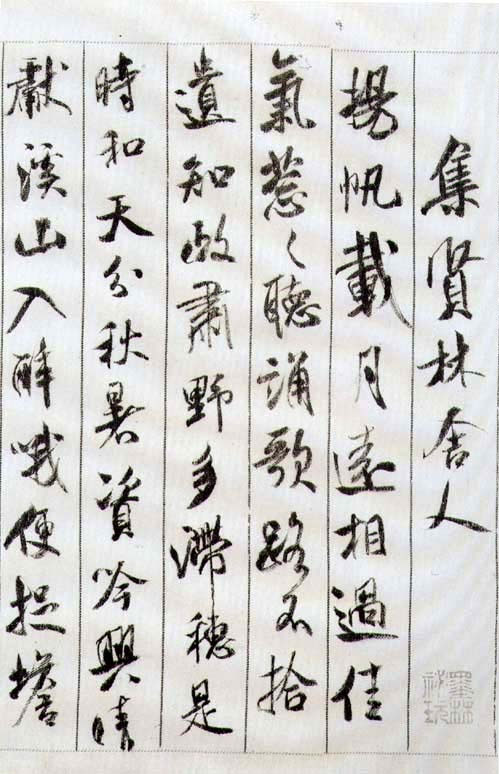 集賢林舍人
揚帆載月遠相過佳
氣葱々聽誦歌路不拾
遺知政肅野多滯穗是
時和天分秋暑資吟興晴
獻溪山入醉哦便捉蟾
墨林祕玩